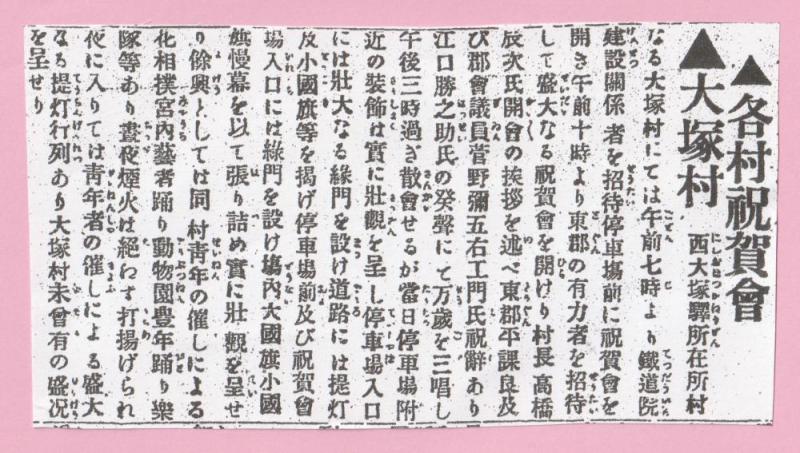 ▲各村祝賀會
▲大塚村 西大塚驛所在所村
なる大塚村にては午前七時より鐵道院
建設關係者を招待停車場前に祝賀會を
開き午前十時より東郡の有力者を招待
して盛大なる祝賀會を開けり村長高橋
辰次氏開會の挨拶を述べ東郡平課長及
び郡會議員菅野彌五右工門氏祝辭あり
江口勝之助氏の発聲にて万歳を三唱し
午後三時過ぎ散會せるが當日停車場附
近の装飾は實に壯觀を呈し停車場入口
には壯大なる緑門を設け道路には提灯
及小國旗等を揭げ停車場前及び祝賀會
場入口には綠門を設け塲內大國旗小國
旗慢幕を以て張り詰め實に壯觀を呈せ
り餘興としては同村靑年の催しによる
化相撲宮內藝者踊り動物園豊年踊り樂
隊等あり晝夜煙火は絕わず打揚げられ
夜に入りては靑年者の催しによる盛大
なる提灯行列あり大塚村未曾有の盛況
を呈せり